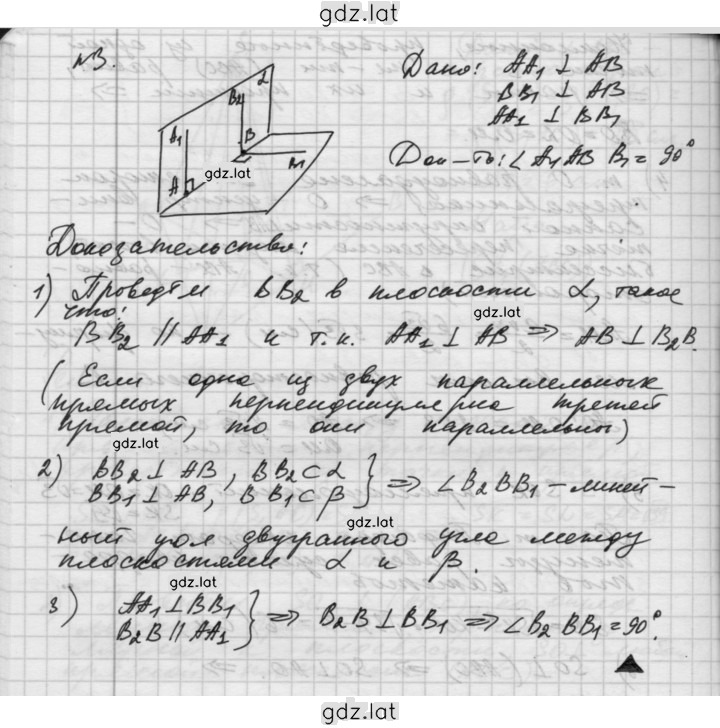 gdz.lat
№3.
Дано: AA₁ ⊥ AB
BB₁ ⊥ AB
AA₁ ⊥ BB₁
Док-ть: ∠ A₁AB B₁ = 90°
α
B₂
A₁
B
B₁
A
gdz.lat
Доказательство:
1) Проведём BB₂ в плоскости α, такое
что:
gdz.lat
BB₂ // AA₁ и т.к. AA₁ ⊥ AB ⇒ AB ⊥ B₂B.
(Если одна из двух параллельных
прямых перпендикулярна третей
прямой, то они параллельны)
gdz.lat
2) BB₂ ⊥ AB, BB₂ ⊂ α
BB₁ ⊥ AB, BB₁ ⊂ β } ⇒ ∠B₂BB₁ – линей-
gdz.lat
ный угол двугранного угла между
плоскостями α и β.
gdz.lat
3) AA₁ ⊥ BB₁
B₂B // AA₁ } ⇒ B₂B ⊥ BB₁ ⇒ ∠B₂BB₁ = 90°.
gdz.lat